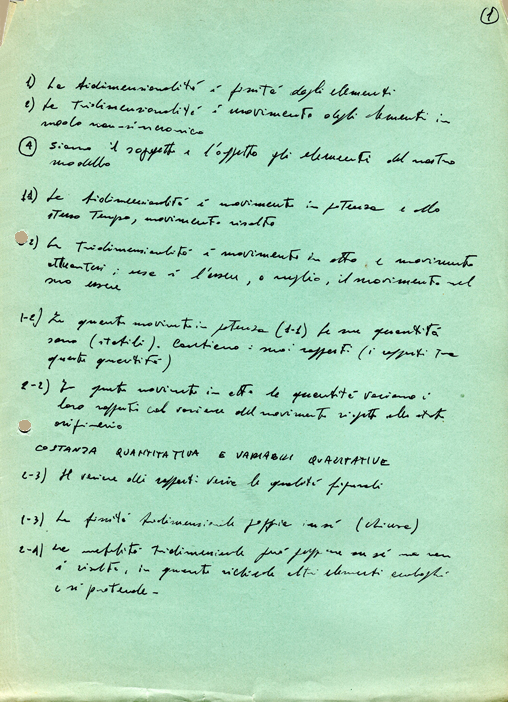 (1)
1) La tridimensionalità è fissità degli elementi
2) La Tridimensionalità è movimento degli elementi in
modo non-sincronico
(A) Siano il soggetto e l'oggetto gli elementi del nostro
modello
La tridimensionalità è movimento in potenza e allo
stesso Tempo, movimento risolto
2) La Tridimensionalità è movimento in atto e movimento
; essa è l'essere, o meglio, il movimento nel
suo essere
1-2) In questo movimento in potenza (1-1) le sue quantità
sono (stabili). Conteniamo i suoi rapporti (i rapporti Tra
queste quantità)
2-2) In questo movimento in atto le quantità variano i
loro rapporti col variare del movimento rispetto allo stato
originario
COSTANZA QUANTITATIVA E VARIABILI QUALITATIVE
2-3) Al variare dei rapporti varia le qualità figurali
1-3) La fissità tridimensionale poggia in sé (chiusa)
2-4) La mobilità tridimensionale può poggiare in sé ma non
è risolta, in quanto richiede altri elementi analoghi
e si protende -